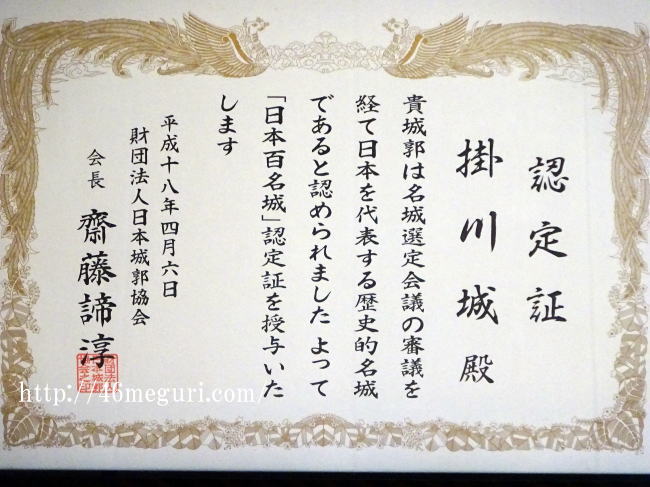 認定証
掛川城殿
貴城郭は名城選定会議の審議を
経て日本を代表する歴史的名城
であると認められました よって
「日本百名城」認定証を授与いた
します
平成十八年四月六日
財団法人日本城郭協会
会長 齋藤諦淳
http://46meguri.com/